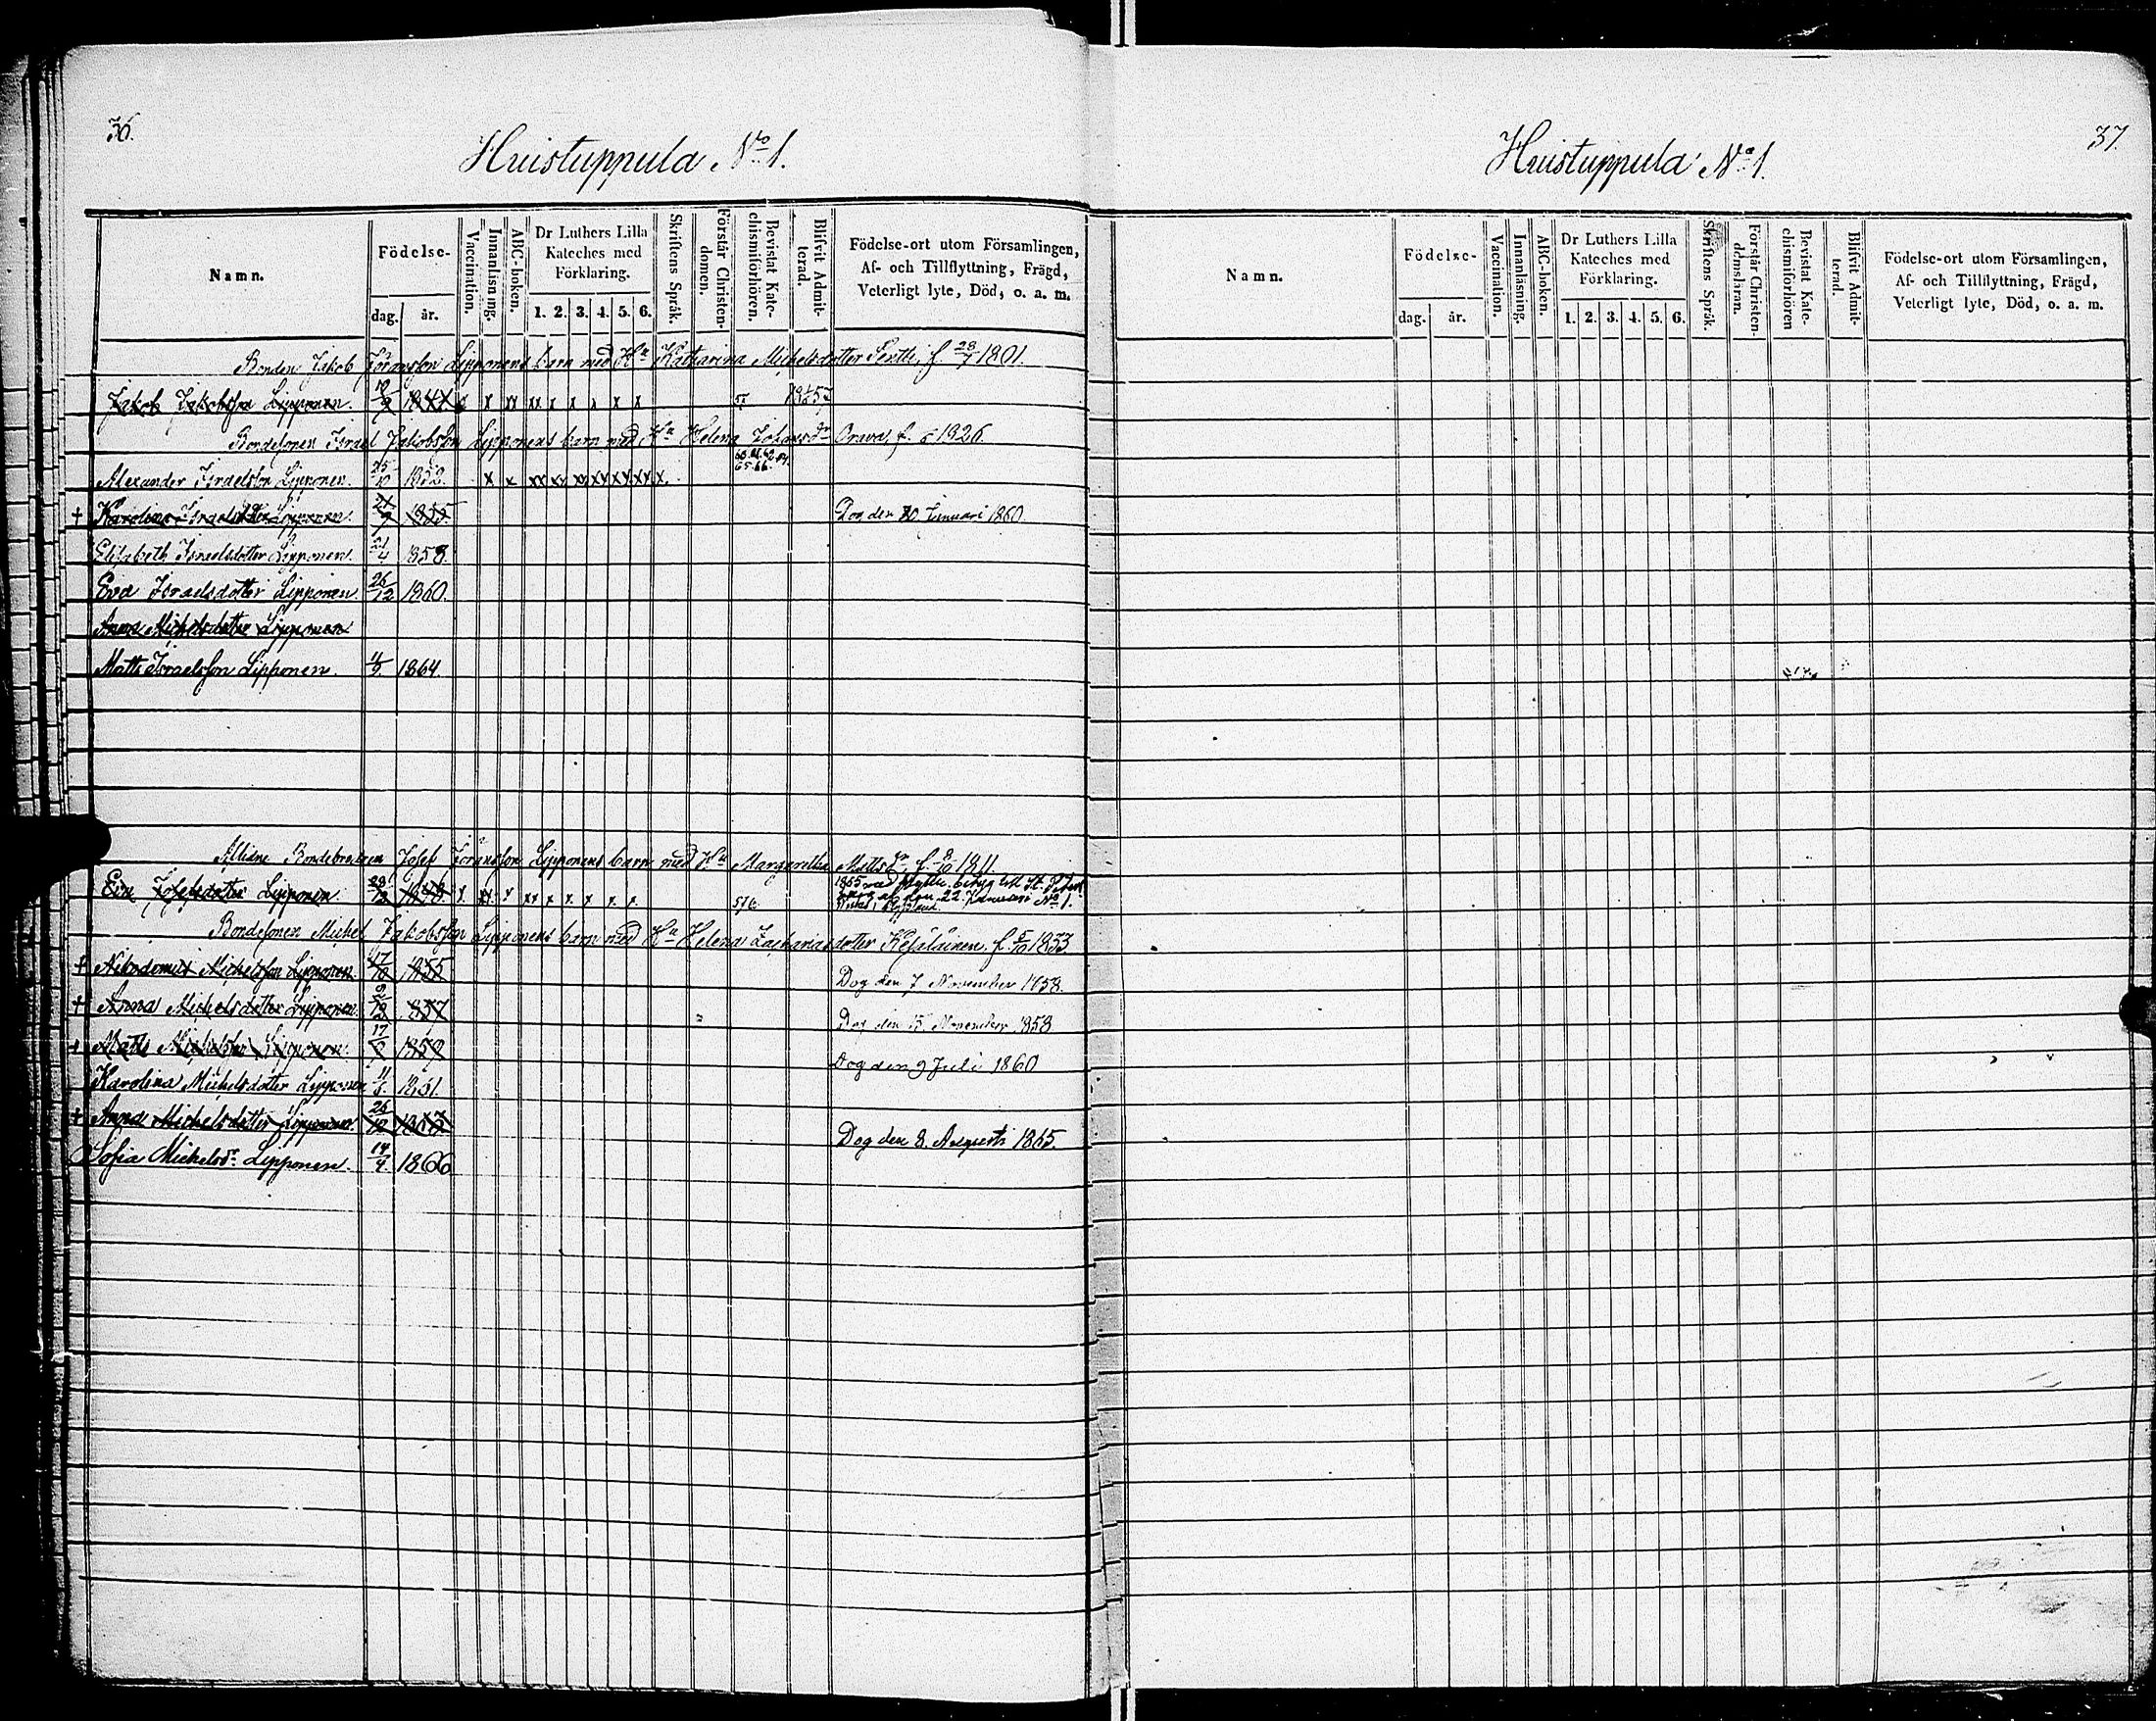 36.
Huistuppula No 1.
Namn.
Födelse-
dag.
år.
Vaccination.
Innanläsning.
ABC-boken.
Dr Luthers Lilla
Kateches med
Förklaring.
1. 2. 3. 4. 5. 6.
Skriftens Språk.
Förstår Christen-
domen.
Bevistat Kate-
chismiförhören.
Blifvit Admit-
terad.
Födelse-ort utom Församlingen,
Af- och Tillflyttning, Frägd,
Veterligt lyte, Död, o. a. m.
Bonden Jakob Göransson Lipponens barn med Hu Katharina Michelsdotter Sentti, f. 28/7 1801.
Jakob Jakobsson Lipponen. 1841 x x xx xx x x x x x 1857
Bondesonen Israel Jakobsson Lipponens barn med Hu Helena Johansdr Orava, f. 1826.
Alexander Israelsson Lipponen. 25/10 1852. x x xx xx xx xx xx xx x. 65.66.
+ Karolina Israelsdotter Lipponen 1855 Dog den 20 Januari 1860.
Elisabeth Israelsdotter Lipponen. 21/4 1858.
Eva Israelsdotter Lipponen. 26/12 1860.
Anna Michelsdotter Lipponen
Matts Israelsson Lipponen. 11/9. 1864.
Aflidne Bondebrodren Josef Göransson Lipponens barn med Hu Margaretha Mattsdr f. 8/10 1811.
Eva Josefsdotter Lipponen. x. xx. x xx x x. x x. x. 1865 med flytt. betyg till St.
den 22 Februari No 1.
Bondesonen Michel Jakobsson Lipponens barn med Hu Helena Zachariasdotter Kejäläinen. f. 5/10 1833
+ Nikodemus Michelsson Lipponen 17/10 1855 Dog den 7 November 1858.
+ Anna Michelsdotter Lipponen. 1857 Dog den 15 November 1858
+ Matts Michelsson Lipponen. 1859 Dog den 9 Juli 1860
Karolina Michelsdotter Lipponen 11/6 1861.
+ Anna Michelsdotter Lipponen. 26/10 1863 Dog den 8. Augusti 1865.
Sofia Michelsdr Lipponen. 14/4 1866
37.
Huistuppula No 1.
Namn.
Födelse-
dag.
år.
Vaccination.
Innanläsning.
ABC-boken.
Dr Luthers Lilla
Kateches med
Förklaring.
1. 2. 3. 4. 5. 6.
Skriftens Språk.
Förstår Christen-
domsläran.
Bevistat Kate-
chismiförhören
Blifvit Admit-
terad.
Födelse-ort utom Församlingen,
Af- och Tillflyttning, Frägd,
Veterligt lyte, Död, o. a. m.